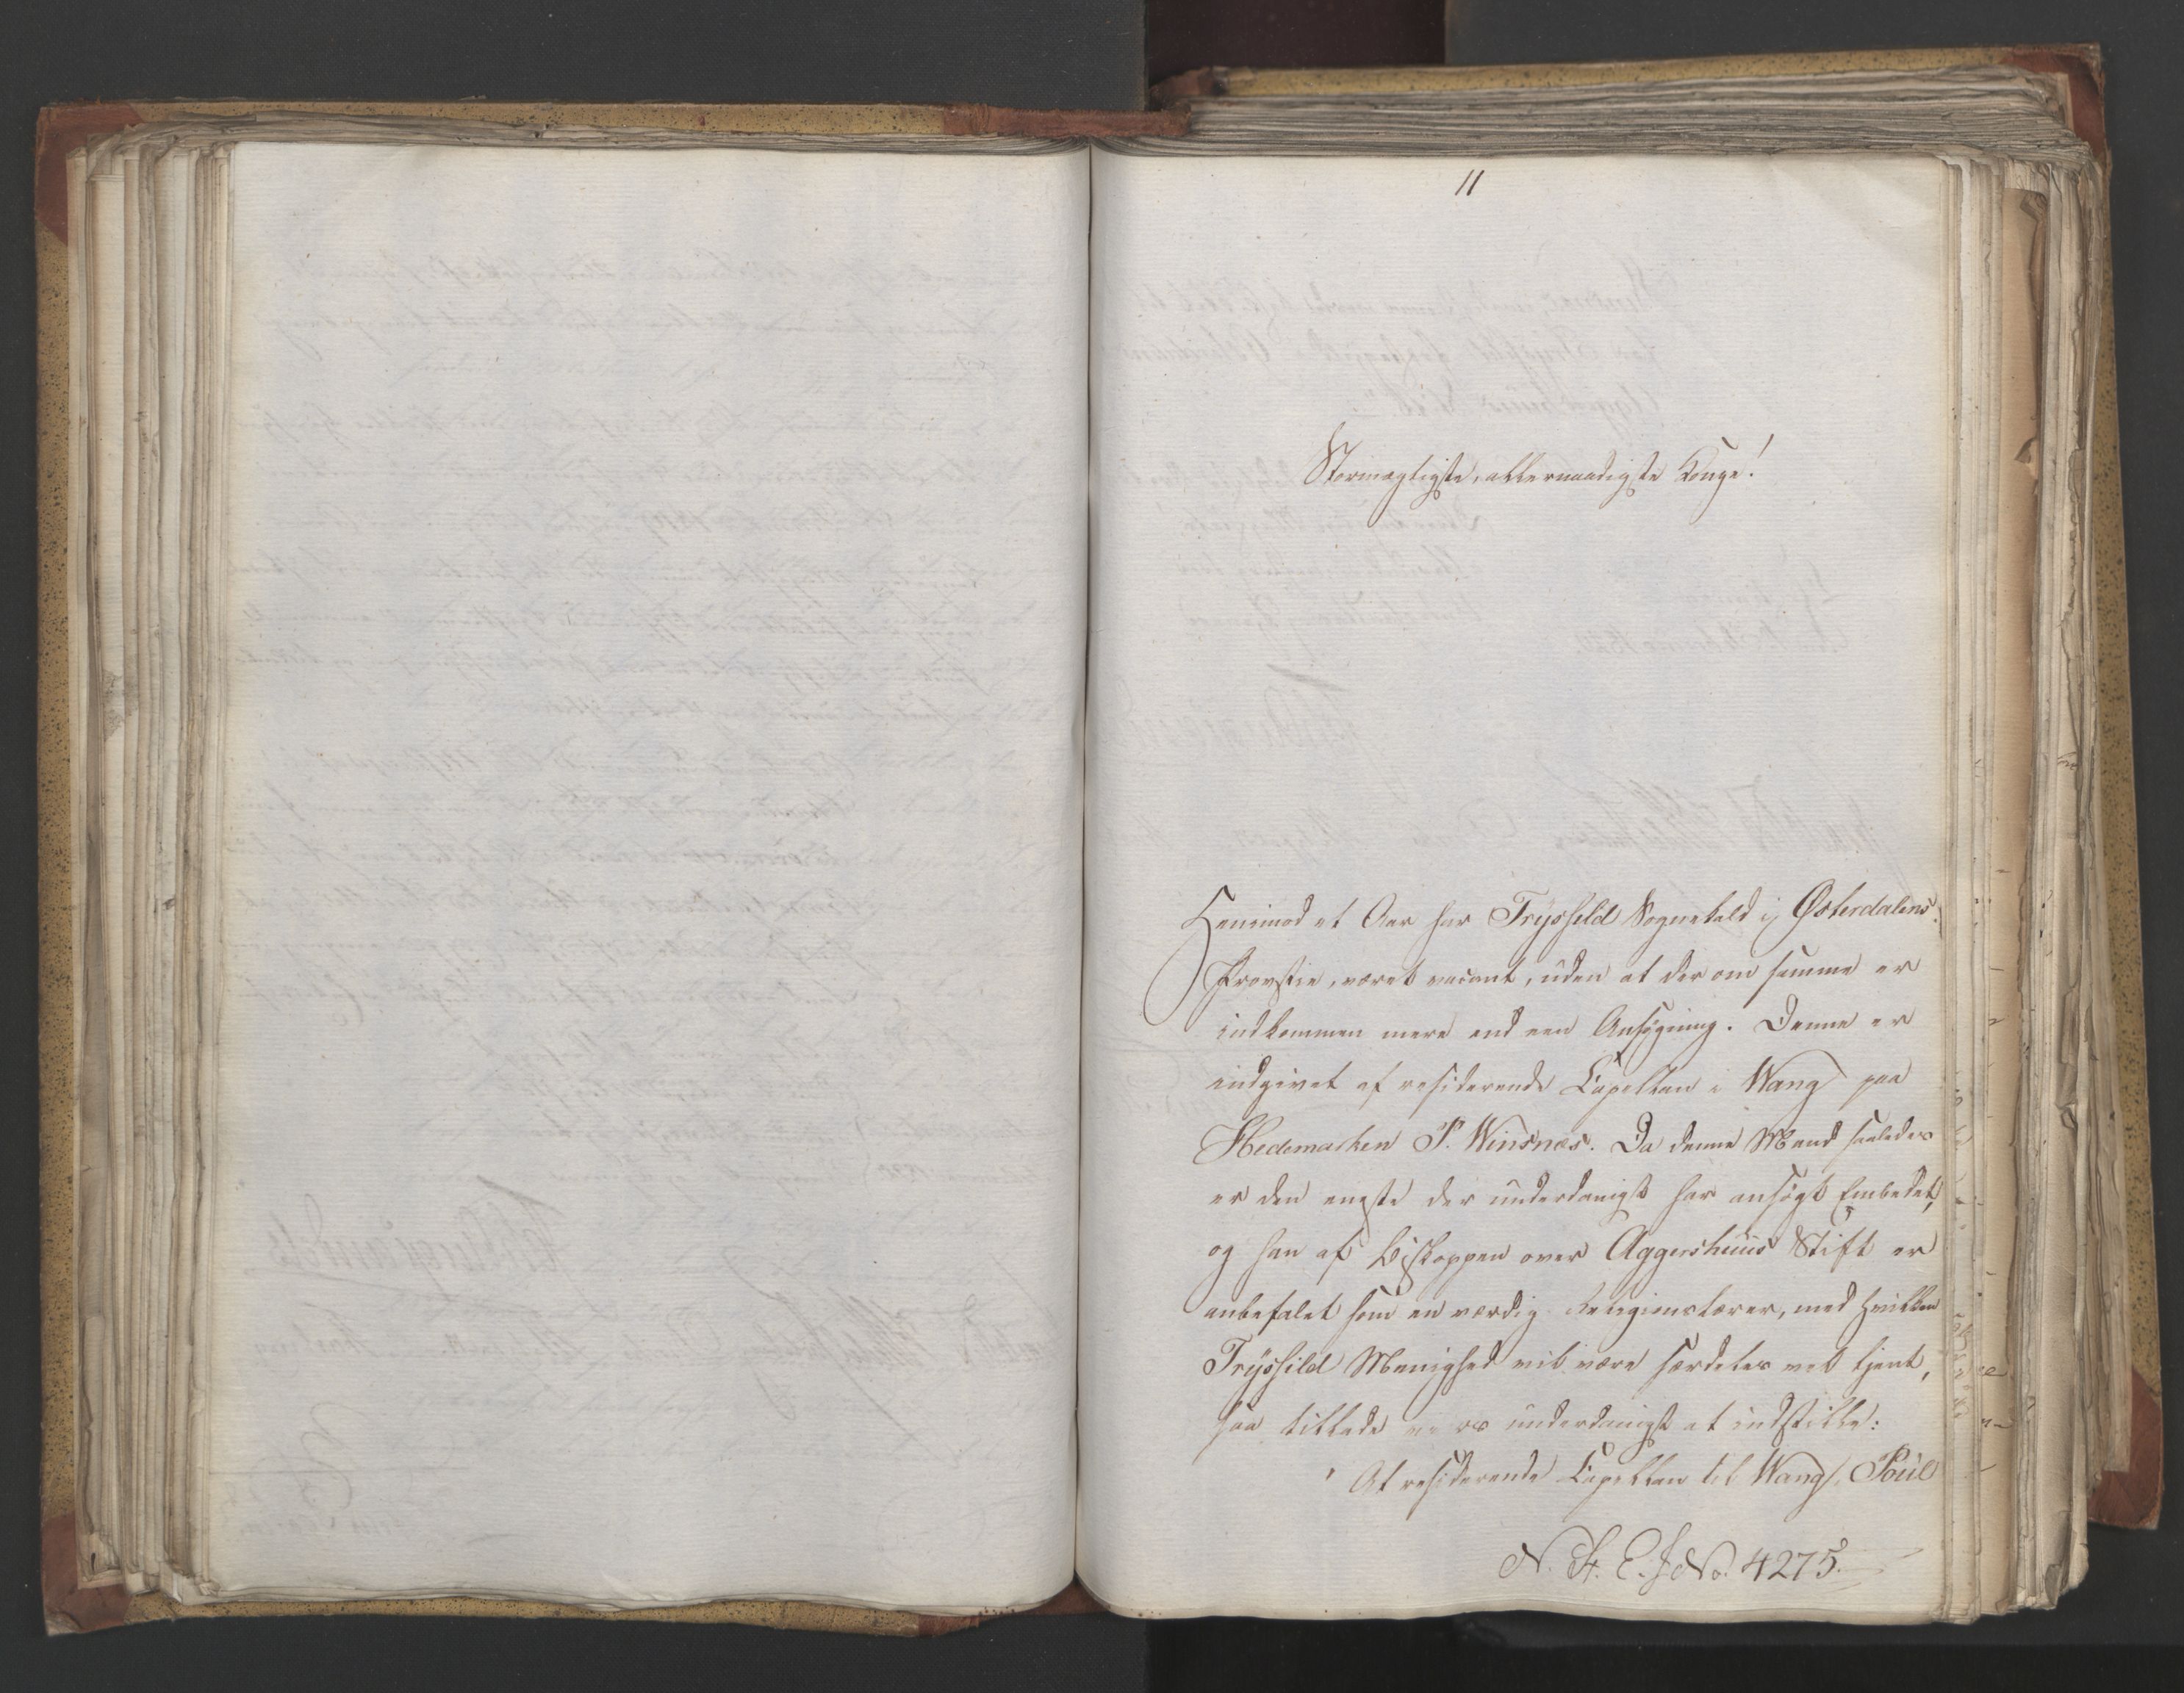 11
Stormægtigste, allernaadigste Konge!
Henimod et Aar har Trysfild Sognekald i Østerdalens
Provstie, været vacant, uden at der om samme er
indkommen mere end een Ansøgning. Denne er
indgivet af residerende Capellan i Wang paa
Hedemarken P. Winsnæs. Da denne Mand saaledes
er den eneste der underdanigst har ansøgt Embedet,
og han af Biskoppen over Aggershuus Stift er
anbefalet som en værdig Religionslærer, med hvilken
Trysfild Menighed vil være særdeles vel tjent,
saa tillade vi os underdanigst at indstille:
At residerende Capellan til Wang, Poul
N. H. E. J No. 4275.